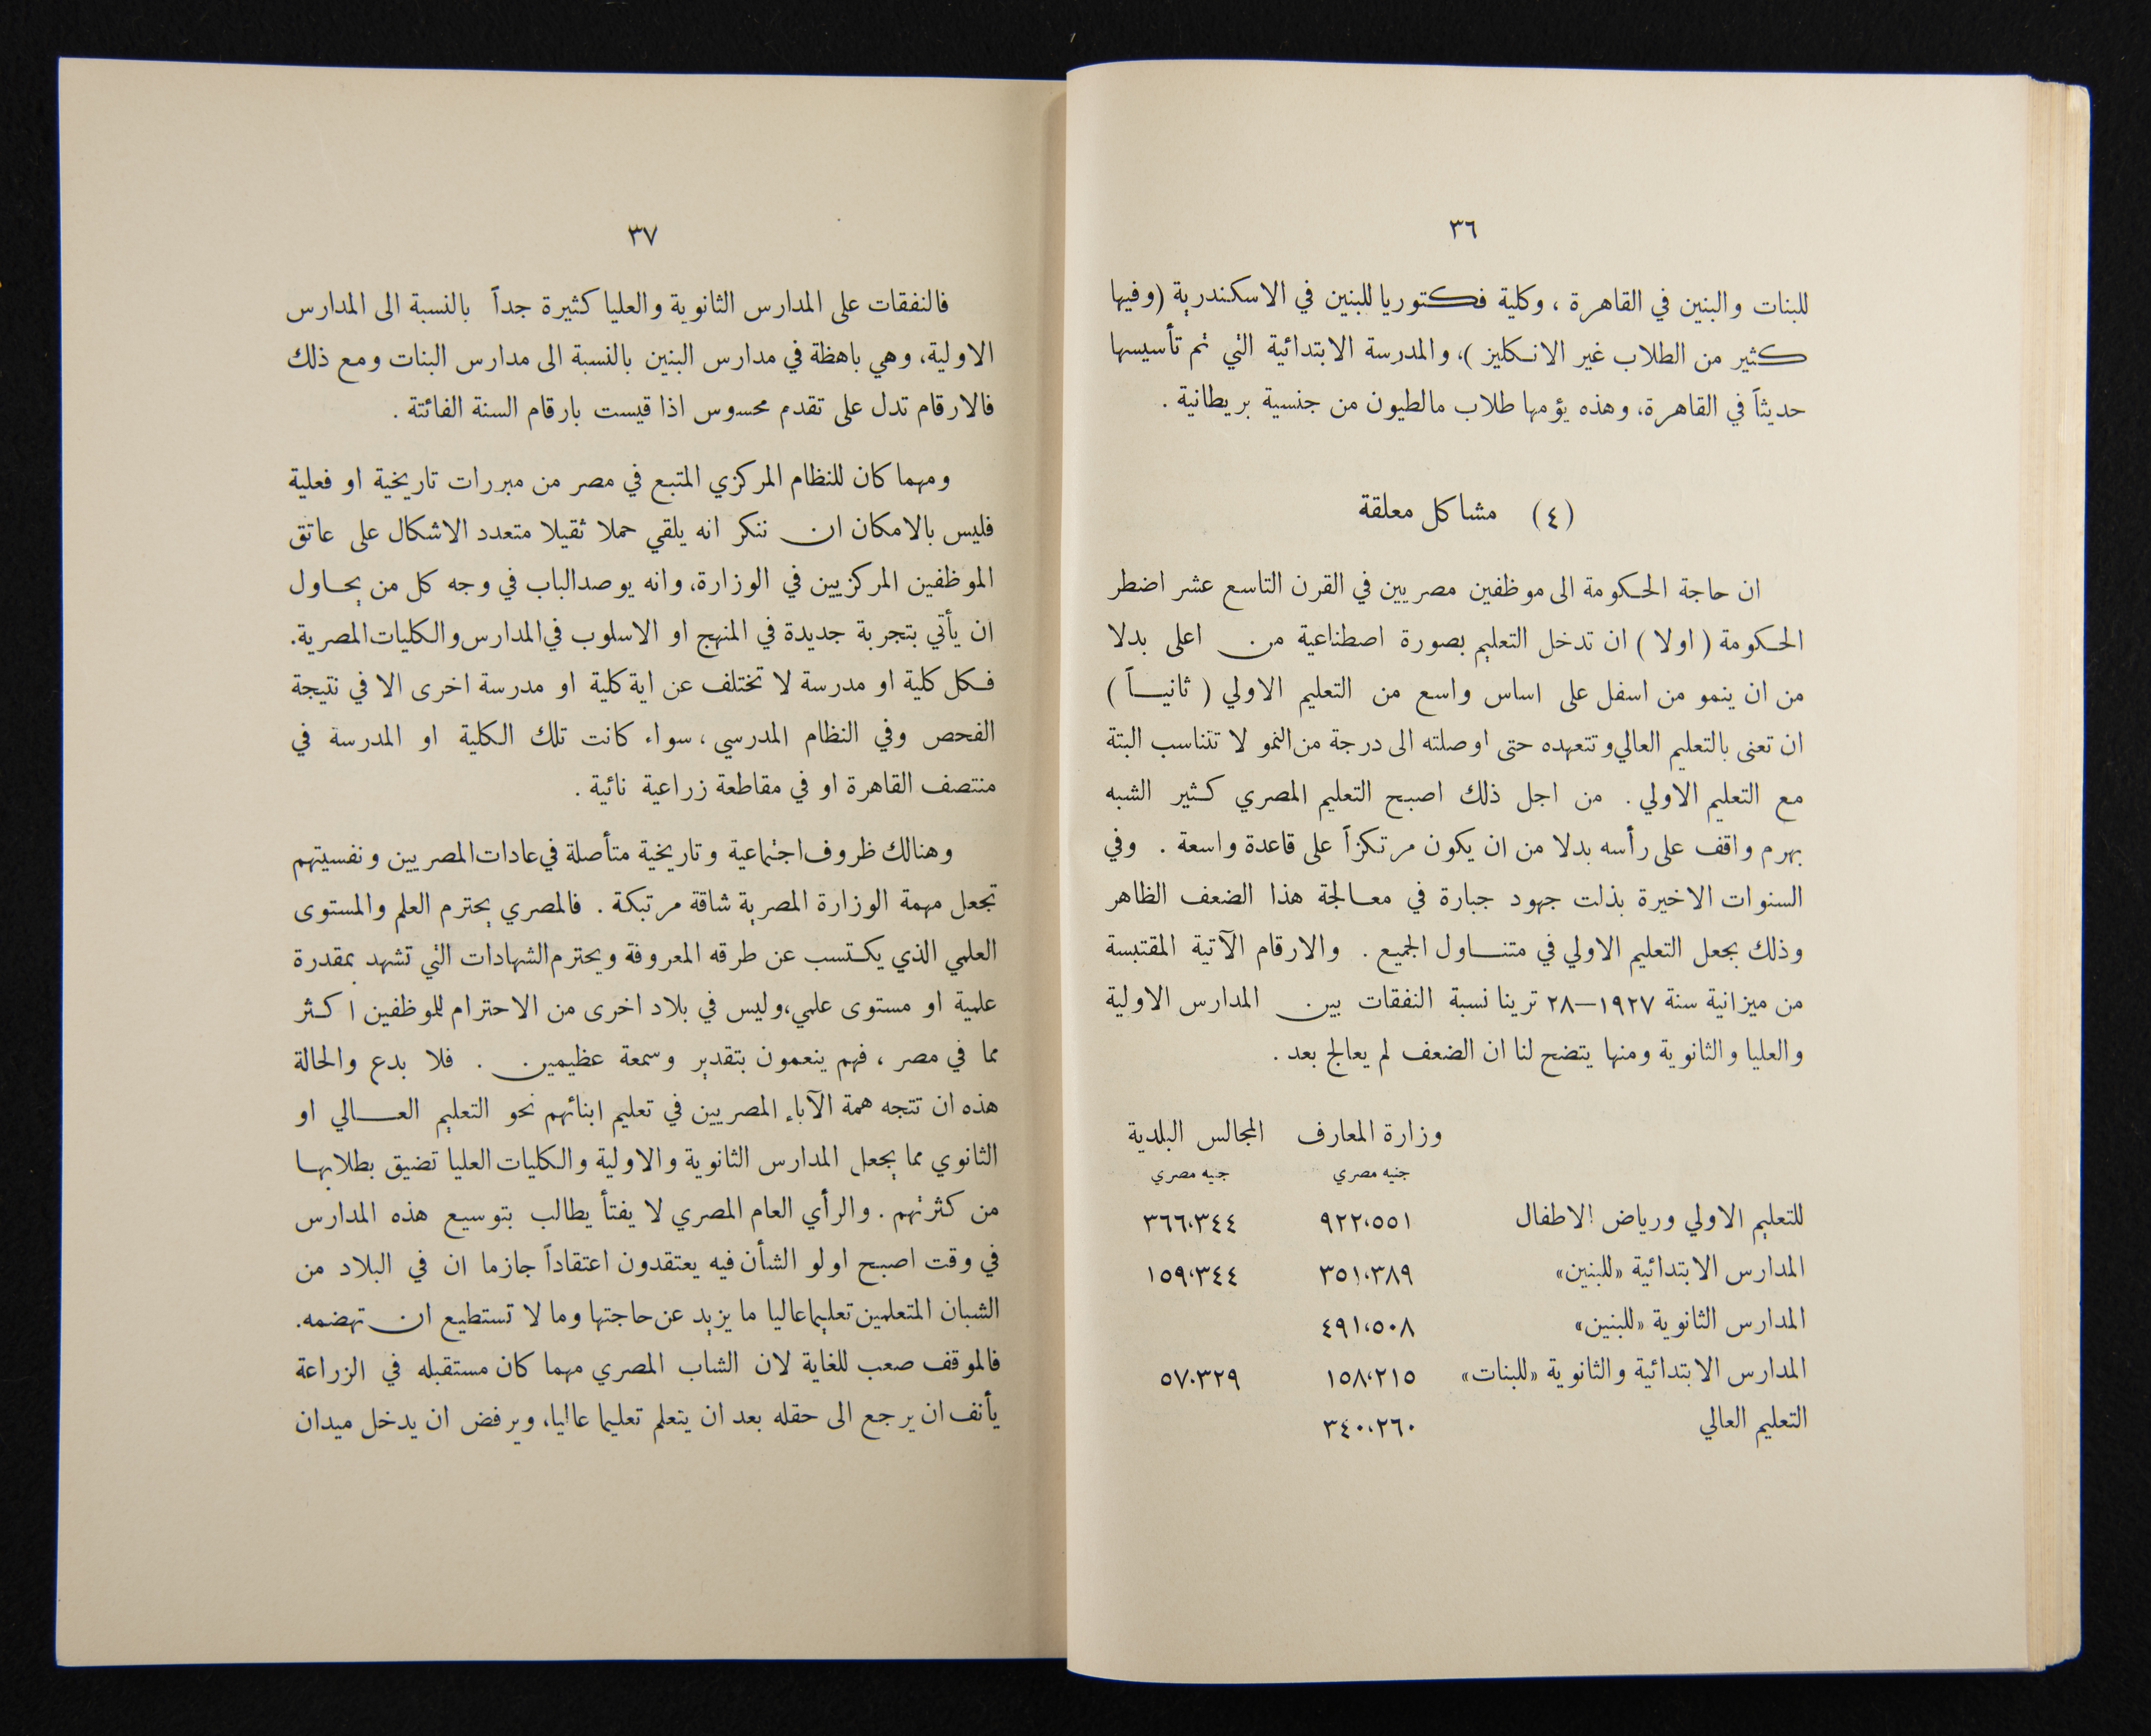 ٣٦
للبنات والبنين في القاهرة ، وكلية فكتوريا للبنين في الاسكندرية (وفيها
كثير من الطلاب غير الانكليز )، والمدرسة الابتدائية التي تم تأسيسها
حديثاً في القاهرة، وهذه يؤمها طلاب مالطيون من جنسية بريطانية .
(٤) مشاكل معلقة
ان حاجة الحكومة الى موظفين مصريين في القرن التاسع عشر اضطر
الحكومة ( اولا ) ان تدخل التعليم بصورة اصطناعية من اعلى بدلا
من ان ينمو من اسفل على اساس واسع من التعليم الاولي ( ثانيـاً )
ان تعنى بالتعليم العالي وتتعهده حتى اوصلته الى درجة من النمو لا تتناسب البتة
مع التعليم الاولي . من اجل ذلك اصبح التعليم المصري كثير الشبه
بهرم واقف على رأسه بدلا من ان يكون مرتكزاً على قاعدة واسعة . وفي
السنوات الاخيرة بذلت جهود جبارة في معالجة هذا الضعف الظاهر
وذلك بجعل التعليم الاولي في متنـاول الجميع . والارقام الآتية المقتبسة
من ميزانية سنة ١٩٢٧—٢٨ ترينا نسبة النفقات بين المدارس الاولية
والعليا والثانوية ومنها يتضح لنا ان الضعف لم يعالج بعد .
وزارة المعارف المجالس البلدية
جنيه مصري جيه مصري
للتعليم الاولي ورياض الاطفال ٩٢٢،٥٥١ ٣٦٦،٣٤٤
المدارس الابتدائية «للبنين» ٣٥١،٣٨٩ ١٥٩،٣٤٤
المدارس الثانوية «للبنين» ٤٩١،٥٠٨
المدارس الابتدائية والثانوية «للبنات» ١٥٨،٢١٥ ٥٧،٣٢٩
التعليم العالي ٣٤٠،٢٦٠
٣٧
فالنفقات على المدارس الثانوية والعليا كثيرة جداً بالنسبة الى المدارس
الاولية، وهي باهظة في مدارس البنين بالنسبة الى مدارس البنات ومع ذلك
فالارقام تدل على تقدم محسوس اذا قيست بارقام السنة الفائتة .
ومهما كان للنظام المركزي المتبع في مصر من مبررات تاريخية او فعلية
فليس بالامكان ان ننكر انه يلقي حملا ثقيلا متعدد الاشكال على عاتق
الموظفين المركزيين في الوزارة، وانه يوصد الباب في وجه كل من يحـاول
ان يأتي بتجربة جديدة في المنهج او الاسلوب في المدارس والكليات المصرية.
فكل كلية او مدرسة لا تختلف عن اية كلية او مدرسة اخرى الا في نتيجة
الفحص وفي النظام المدرسي ، سواء كانت تلك الكلية او المدرسة في
منتصف القاهرة او في مقاطعة زراعية نائية .
وهنالك ظروف اجتماعية وتاريخية متأصلة في عادات المصريين ونفسيتهم
تجعل مهمة الوزارة المصرية شاقة مرتبكة . فالمصري يحترم العلم والمستوى
العلمي الذي يكتسب عن طرقه المعروفة ويحترم الشهادات التي تشهد بمقدرة
علمية او مستوى علمي، وليس في بلاد اخرى من الاحترام للموظفين اكثر
مما في مصر ، فهم ينعمون بتقدير وسمعة عظيمين . فلا بدع والحالة
هذه ان تتجه همة الآباء المصريين في تعليم ابنائهم نحو التعليم العـالي او
الثانوي مما يجعل المدارس الثانوية والاولية والكليات العليا تضيق بطلابها
من كثرتهم . والرأي العام المصري لا يفتأ يطالب بتوسيع هذه المدارس
في وقت اصبح اولو الشأن فيه يعتقدون اعتقاداً جازما ان في البلاد من
الشبان المتعلمين تعليما عاليا ما يزيد عن حاجتها وما لا تستطيع ان تهضمه.
فالموقف صعب للغاية لان الشاب المصري مهما كان مستقبله في الزراعة
يأنف ان يرجع الى حقله بعد ان يتعلم تعليما عاليا، ويرفض ان يدخل ميدان